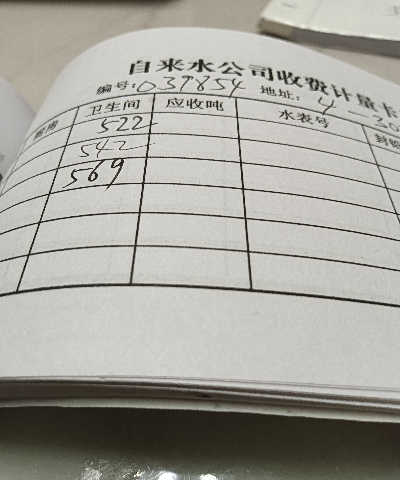 自来水公司收费计量卡
编号:039854 地址: 4-30
厨房 卫生间 应收吨 水表号
522
542
569